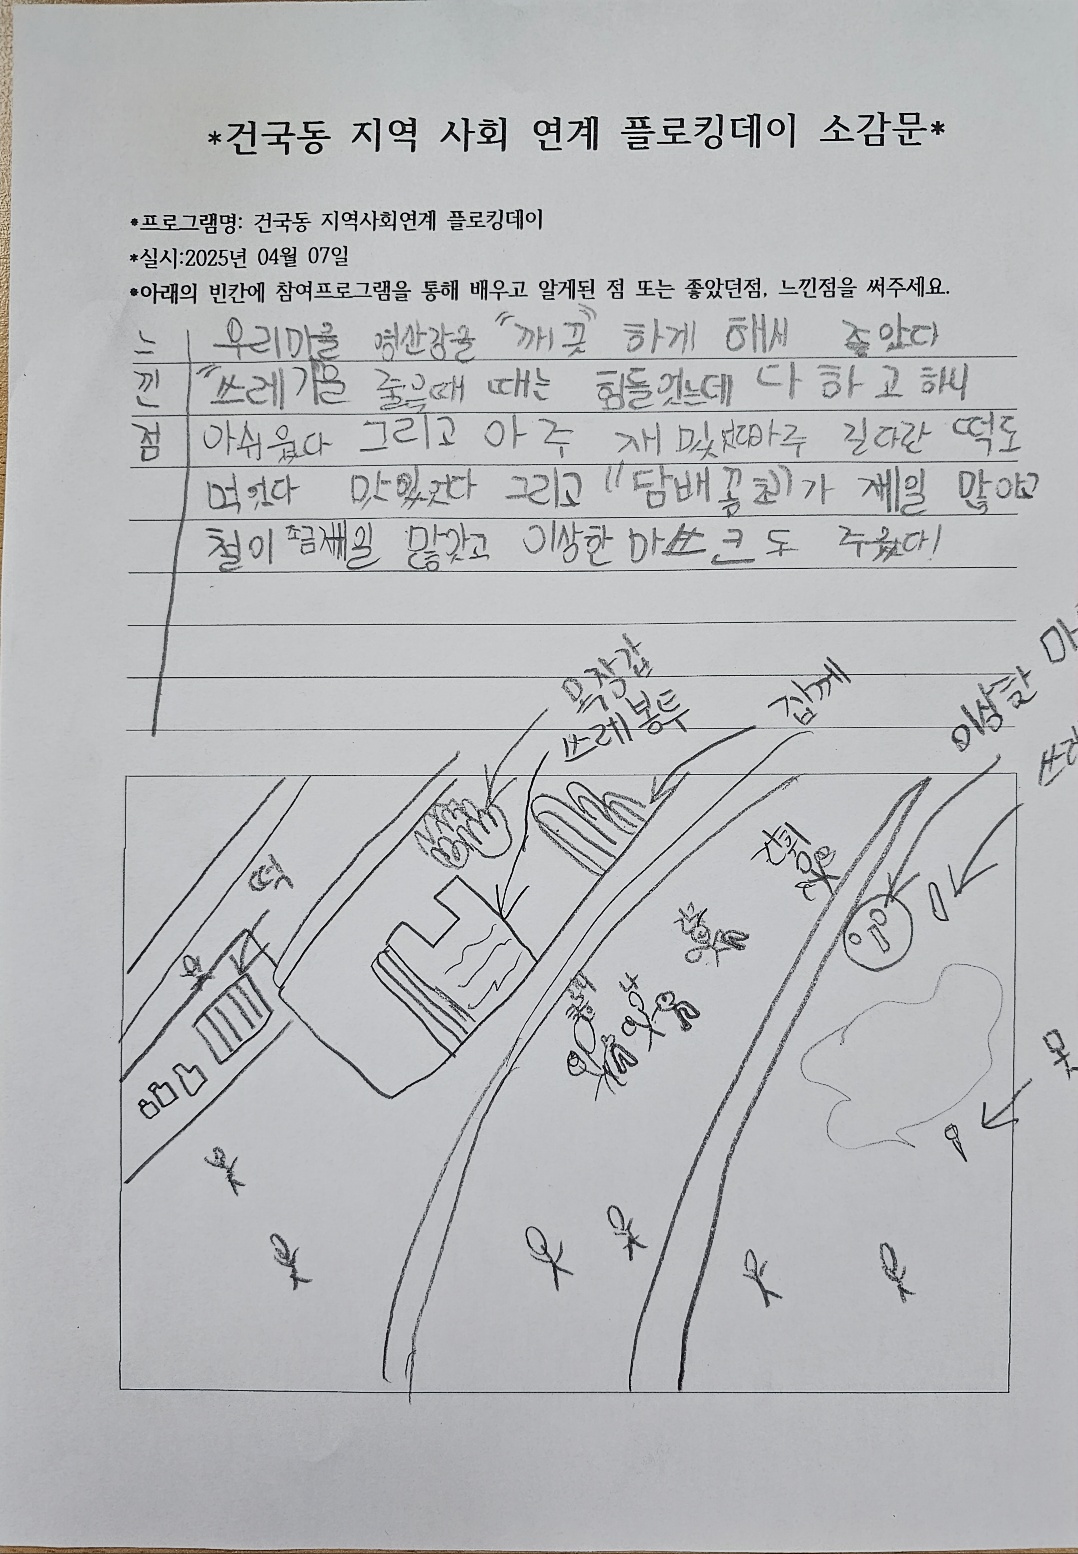 *건국동 지역 사회 연계 플로킹데이 소감문*
*프로그램명: 건국동 지역사회연계 플로킹데이
*실시:2025년 04월 07일
*아래의 빈칸에 참여프로그램을 통해 배우고 알게된 점 또는 좋았던점, 느낀점을 써주세요.
느 우리마을 영산강을 "깨끗" 하게 해서 좋았다
낀 "쓰레기을 줄을때 때는 힘들었는데 다 하고 하니
점 아쉬웠다 그리고 아주 재밌었다아주 길다란 떡도
먹었다 맛있었다 그리고 "담배꽁초"가 제일 많았고
철이 조금제일 많았고 이상한 마쓰크도 주웠다!
목장갑
쓰레봉투
집께
이상한 마
쓰레
떡
못